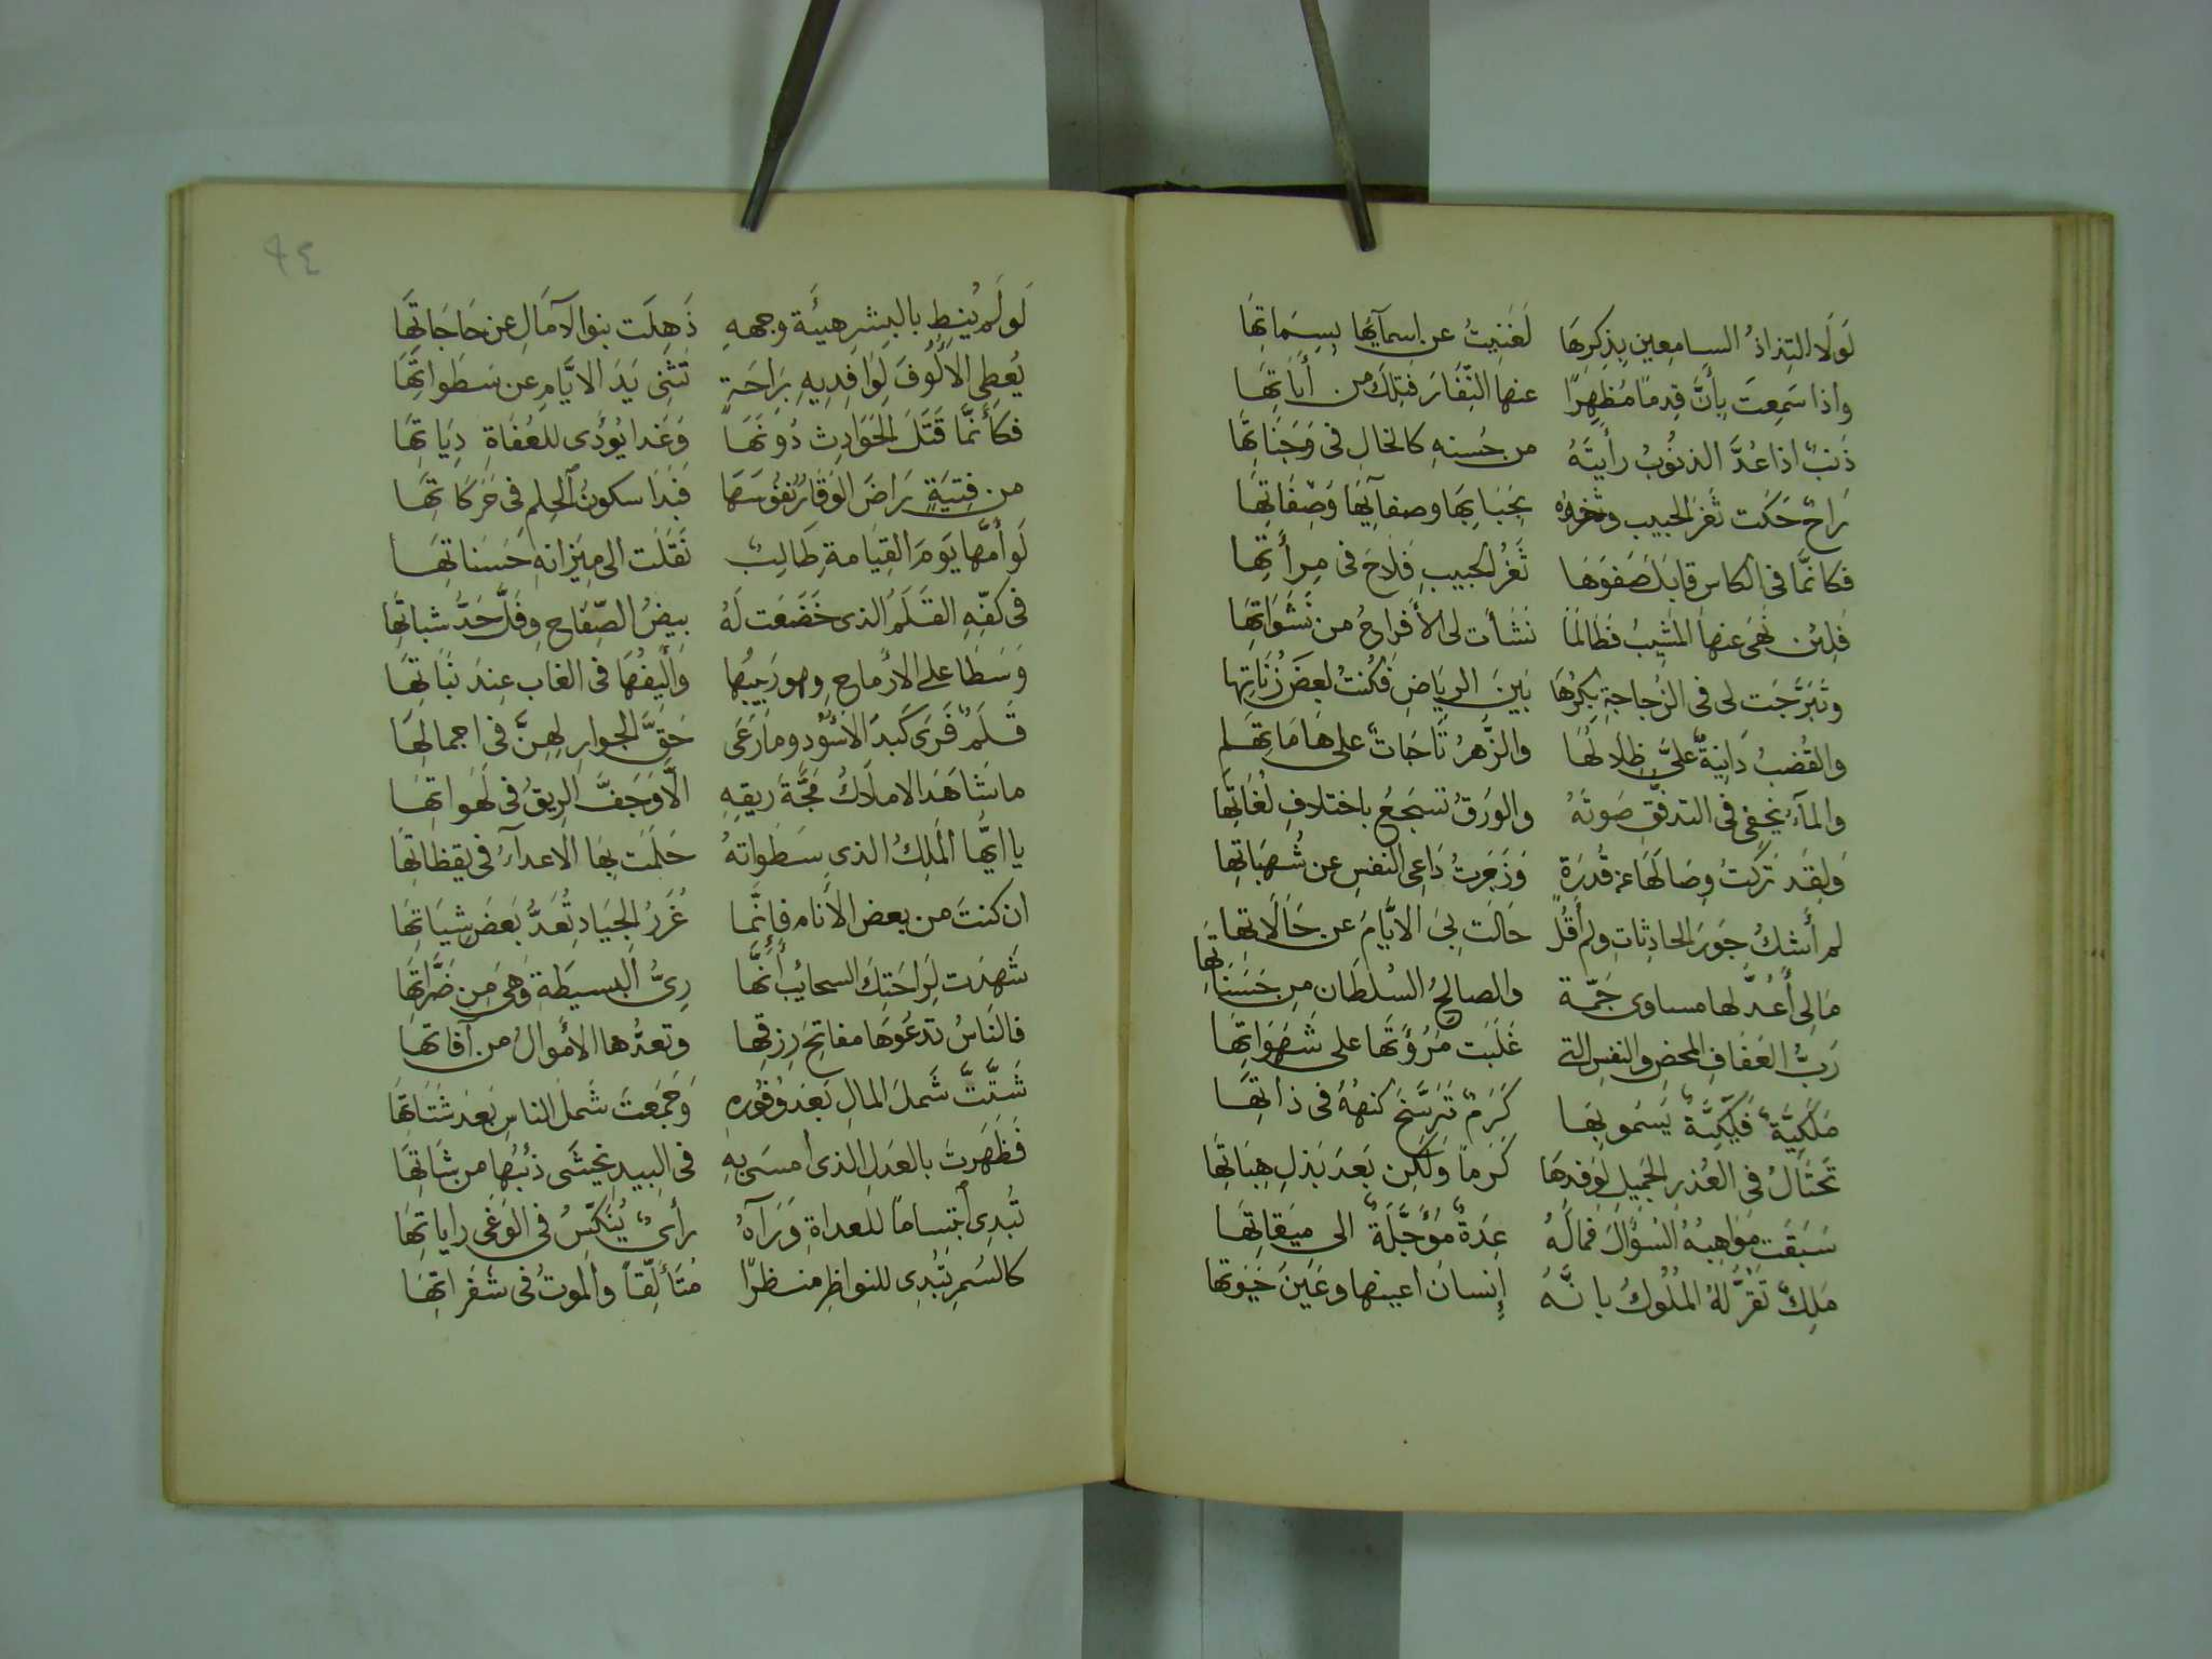 لَولَا التِذاذُ السامِعينِ بِذِكرِهَا لَغَنِيتُ عن اسمآئِهَا بِسِمَاتِهَا
واذا سَمِعتَ بِأَنَّ قِدمًا مُظهِرًا عنها النِّفَارَ فتِلكَ من أَنَاتِهَا
ذَنبٌ اذا عُدَّ الذنُوبُ رأيتَهُ من حُسنِهِ كالخالِ فى وَجَنَاتِهَا
رَاحٌ حَكَت ثَغرَ الحبيب وخدَهُ بِحَبَابِهَا وصفآئِهَا وَصِفَاتِهَا
فكانمَّا فى الكاس قابَلَ صَفوَهَا ثَغرُ الحبيبِ فَلَاحَ فى مِرأتِهَا
فلِئن نَهَى عنها المَشِيبُ فطَالمَا نشَأت لى الأَفراحُ من نَشَوَاتِهَا
وتَبَرَّجَت لى فى الزُجاجةِ بِكرُهَا بَينَ الرِيَاضِ فَكُنتُ بعضَ زُنَاتِهَا
والقُضبُ دَانِيَةٌ علىَّ ظِلَالُهَا والزَّهرُ تَاجَاتٌ على هَامَاتِهَا
والمآءُ يخفى فى التدفّقِ صَوتَهُ والوَرَقُ تسجَعُ باختلافِ لُغَاتِهَا
وَلِقَد تركتُ وِصَالَهَا عن قُدرَةٍ وَزَجَرتُ دَاعِى النفسِ عن شُهبَاتِهَا
لم أشكُ جَورَ الحادِثاتِ ولم أقُل حَالَت بِىَ الايَّامُ عن حَالَاتِهَا
مَا لِى أَعُدُّ لها مساوى جَمّة والصالحُ السُلطَان من حَسَنَاتِهَا
رَبُّ العَفَافِ المحضِ والنفسِ التى غَلَبَت مُرُؤَتُهَا على شَهَوَاتِهَا
مَلَكِيَّةٌ فَلَكِيَّةٌ يَسمُو بِهَا كَرَمٌ تَرَسَّخَ كنهُهُ فى ذاتِهَا
تَحتَالُ فى العُذرِ الجَمِيلِ لِوَفدِهَا كَرَماً وَلَكِن بَعدَ بَذلِ هِبَاتِهَا
سَبَقَت مَوَاهِبُهُ السُؤَالَ فمَا لَهُ عِدَةٌ مُؤَجَّلَةٌ الى مِيقاتِهَا
مَلِكٌ تَقرُّ لهُ المُلُوكُ بانَّهُ إِنسان اعينها وعَينُ حَيوتها
٩٤
لَو لَم يُنِطِ بالبِشرِ هيئَةَ وجههِ ذَهِلَت بنو الآمَالِ عن حَاجَاتِهَا
يُعطِى الأُلُوفَ لِوَافِدِيهِ بِرَاحَةٍ تَثنِى يَدَ الايَّامِ عن سَطَواتِهَا
فكأَنَّمَّا قَتَلَ الحَوَادِث دُونَهَا وَغَدا يُؤدّى للعُفَاةِ دِيَاتِهَا
من فِتيَةٍ رَاضَ الوَقَارُ نُفُوسَهَا فبَدَا سكونُ الحِلم فى حَرَكَاتِهَا
لَو أَمَّهَا يَومَ القِيَامةِ طَالِبٌ نَقَلَت الى مِيزانهِ حَسَناتِهَا
فى كفِّهِ القَلَمُ الذى خَضَعَت لَهُ بيضُ الصِّفَاحِ وفَلَّ حَدُّ شباتِهَا
وَسَطَا على الارماحِ وهو رَبِيبُهَا وَأَلِيفُهَا فى الغَاب عِندَ نبَاتِهَا
قَلَمٌ فَرَى كَبِدَ الأُسُودِ وما رَعَى حَقَّ الجوارِ لهنَّ فى اجماتها
ما شَاهَدَ الاملَاكُ مَجَّةَ رِيقِهِ الّا وَجَفَّ الرِيقُ فى لَهَواتِهَا
يا ايُّهَا المَلِكُ الذى سَطَواتهُ حَلَمَت بِهَا الاعدآءُ فى يقظاتها
ان كنتَ من بعض الأنام فإِنَّما غُرَرُ الجِيَادِ تُعَدُّ بَعضَ شِيَاتِهَا
شَهِدَت لِرَاحَتِكَ السحائبُ أَنَّهَا رِىُّ البسيطَةِ وَهىَ مِن ضَرَّاتِهَا
فالنَاسُ تدعُوهَا مفاتِحَ رِزقِهِا وتعدُّها الأموالُ من آفاتهَا
شَتَّتَّ شَملَ المالِ بَعدَ وُفُورِهِ وَجَمَعتَ شَملَ الناسِ بَعدَ شَتَاتِهَا
فَظَهَرتَ بالعَدلِ الذى أمسَى بهِ فى البيدِ يخشَى ذئبُهَا من شَاتِهَا
تُبدِى ابتساماً للعداةِ وَرَآهُ رأىٌ يُنَكِّسُ فى الوَغَى راياتِهَا
كالسُمرِ تُبدِى للنواظرِ منظرًا مُتَأَلِّقاً والموتُ فى شَفَراتِهَا